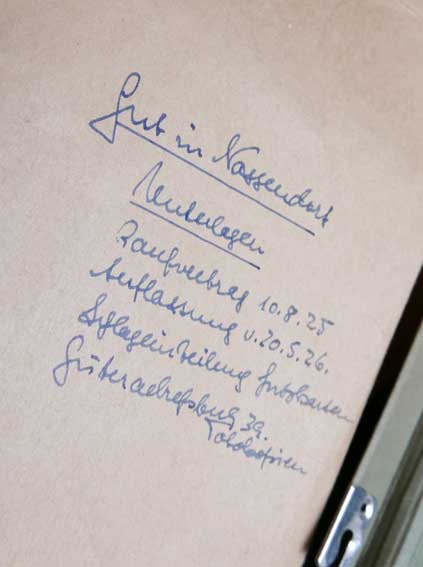 Gut in Nossendorf
Unterlagen
Kaufvertrag 10.8.25
Auflassung v. 20.5.26.
Schlageinteilung Gutskarten
Güteradreßbuch 39.
Fotokopien